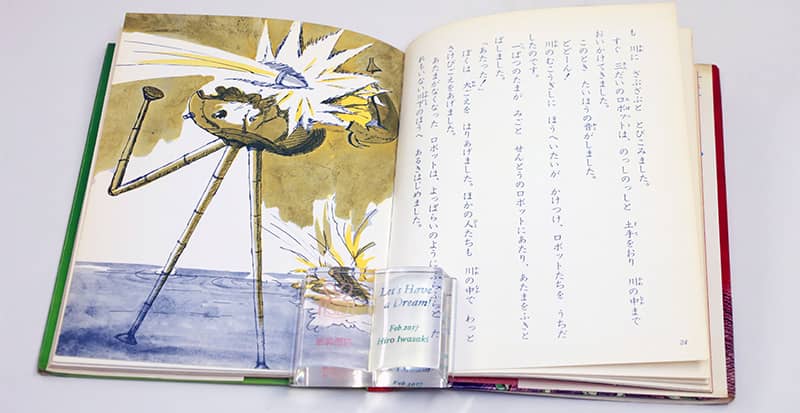 も 川に ざぶざぶと とびこみました。
すぐ 三だいのロボットは、のっしのっしと 土手をおり 川の中まで
おいかけてきました。
このとき たいほうの音がしました。
どどーん!
川のむこうぎしに ほうへいたいが かけつけ、ロボットたちを うちだ
したのです。
一ぱつのたまが みごと せんとうのロボットにあたり、あたまをふきと
ばしました。
「あたった!」
ぼくは 大ごえを はりあげました。ほかの人たちも 川の中で わっと
さけびごえをあげました。
あたまがなくなった ロボットは、よっぱらいのように だ
れもいない川下のほうへ あるきはじめました。
24
Let's Have
a Dream!
Feb.2017
Hiro Iwasaki